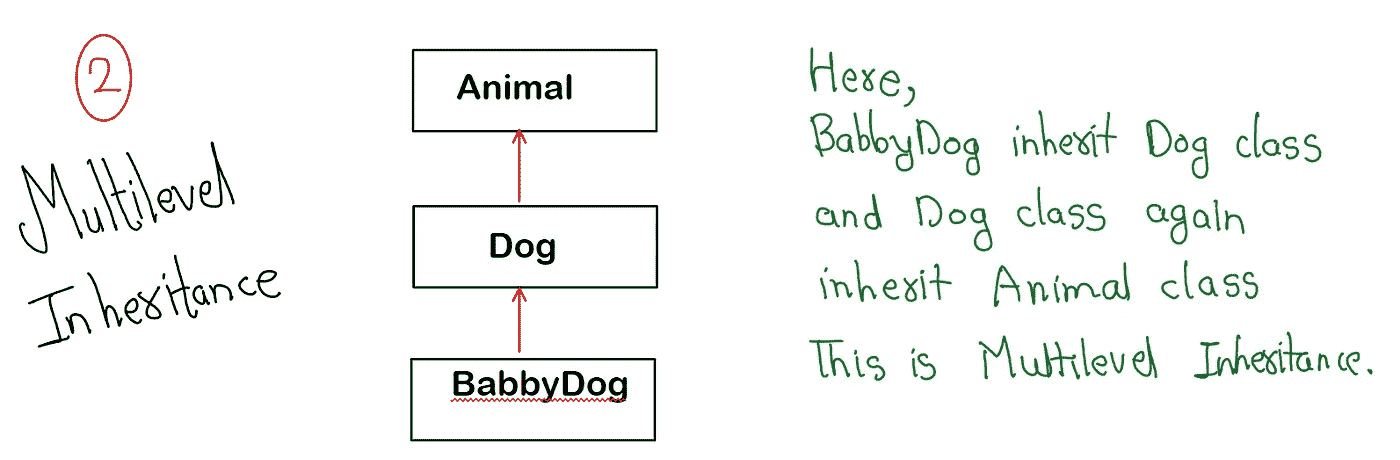 2
Multilevel
Inheritance
Animal
Dog
BabbyDog
Here,
BabbyDog inherit Dog class
and Dog class again
inherit Animal class
This is Multilevel Inheritance.